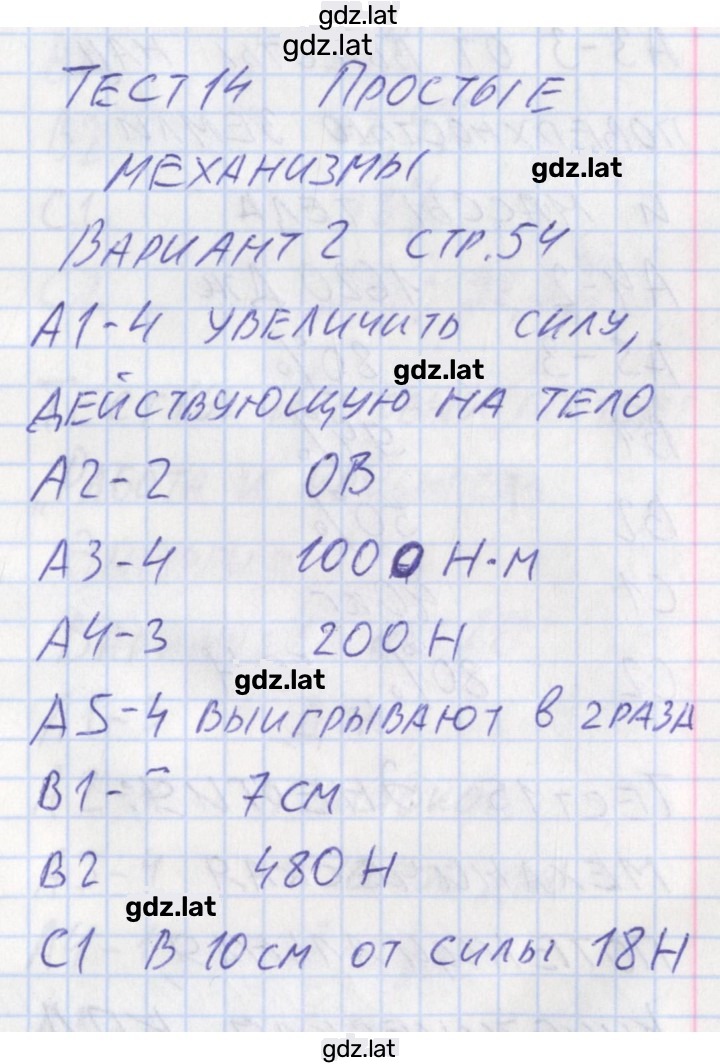 gdz.lat
gdz.lat
ТЕСТ 14 ПРОСТЫЕ
МЕХАНИЗМЫ
gdz.lat
ВАРИАНТ 2 СТР. 54
А1-4 УВЕЛИЧИТЬ СИЛУ,
gdz.lat
ДЕЙСТВУЮЩУЮ НА ТЕЛО
А2-2 ОВ
А3-4 1000 Н·М
А4-3 200 Н
gdz.lat
А5-4 ВЫИГРЫВАЮТ В 2 РАЗА
В1- 7 СМ
В2 480 Н
gdz.lat
С1 В 10 СМ ОТ СИЛЫ 18 Н
gdz.lat